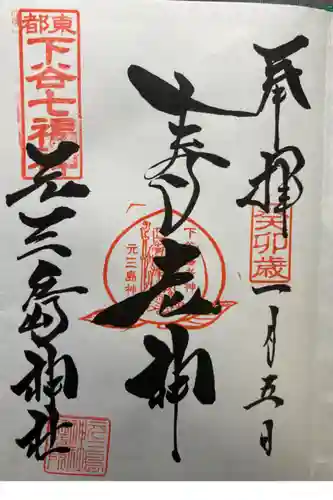 奉拝
癸卯歳
一月五日
寿老神
元三島神社
東都
下谷七福神
元三島神